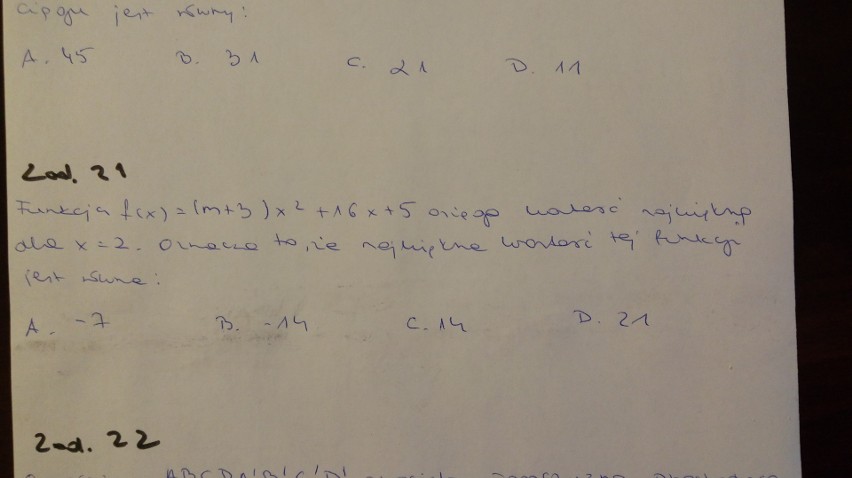 ciągu jest równy:
A. 45 B. 31 C. 21 D. 11
Zad. 21
Funkcja f(x) = (m+3)x² + 16x + 5 osiąga wartość największą
dla x = 2. Oznacza to, że największa wartość tej funkcji
jest równa:
A. -7 B. -14 C. 14 D. 21
Zad. 22
ABCDA'B'C'D'